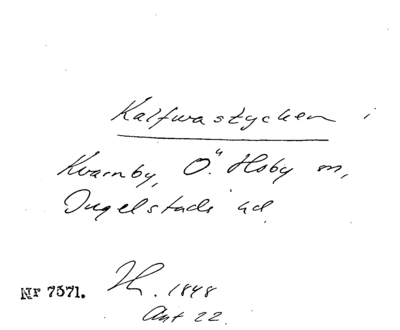 Kalfwastycken i
Kvarnby, Ö. Hoby sn,
Ingelstads hd.
Nr 7571. 1848
Akt 22.